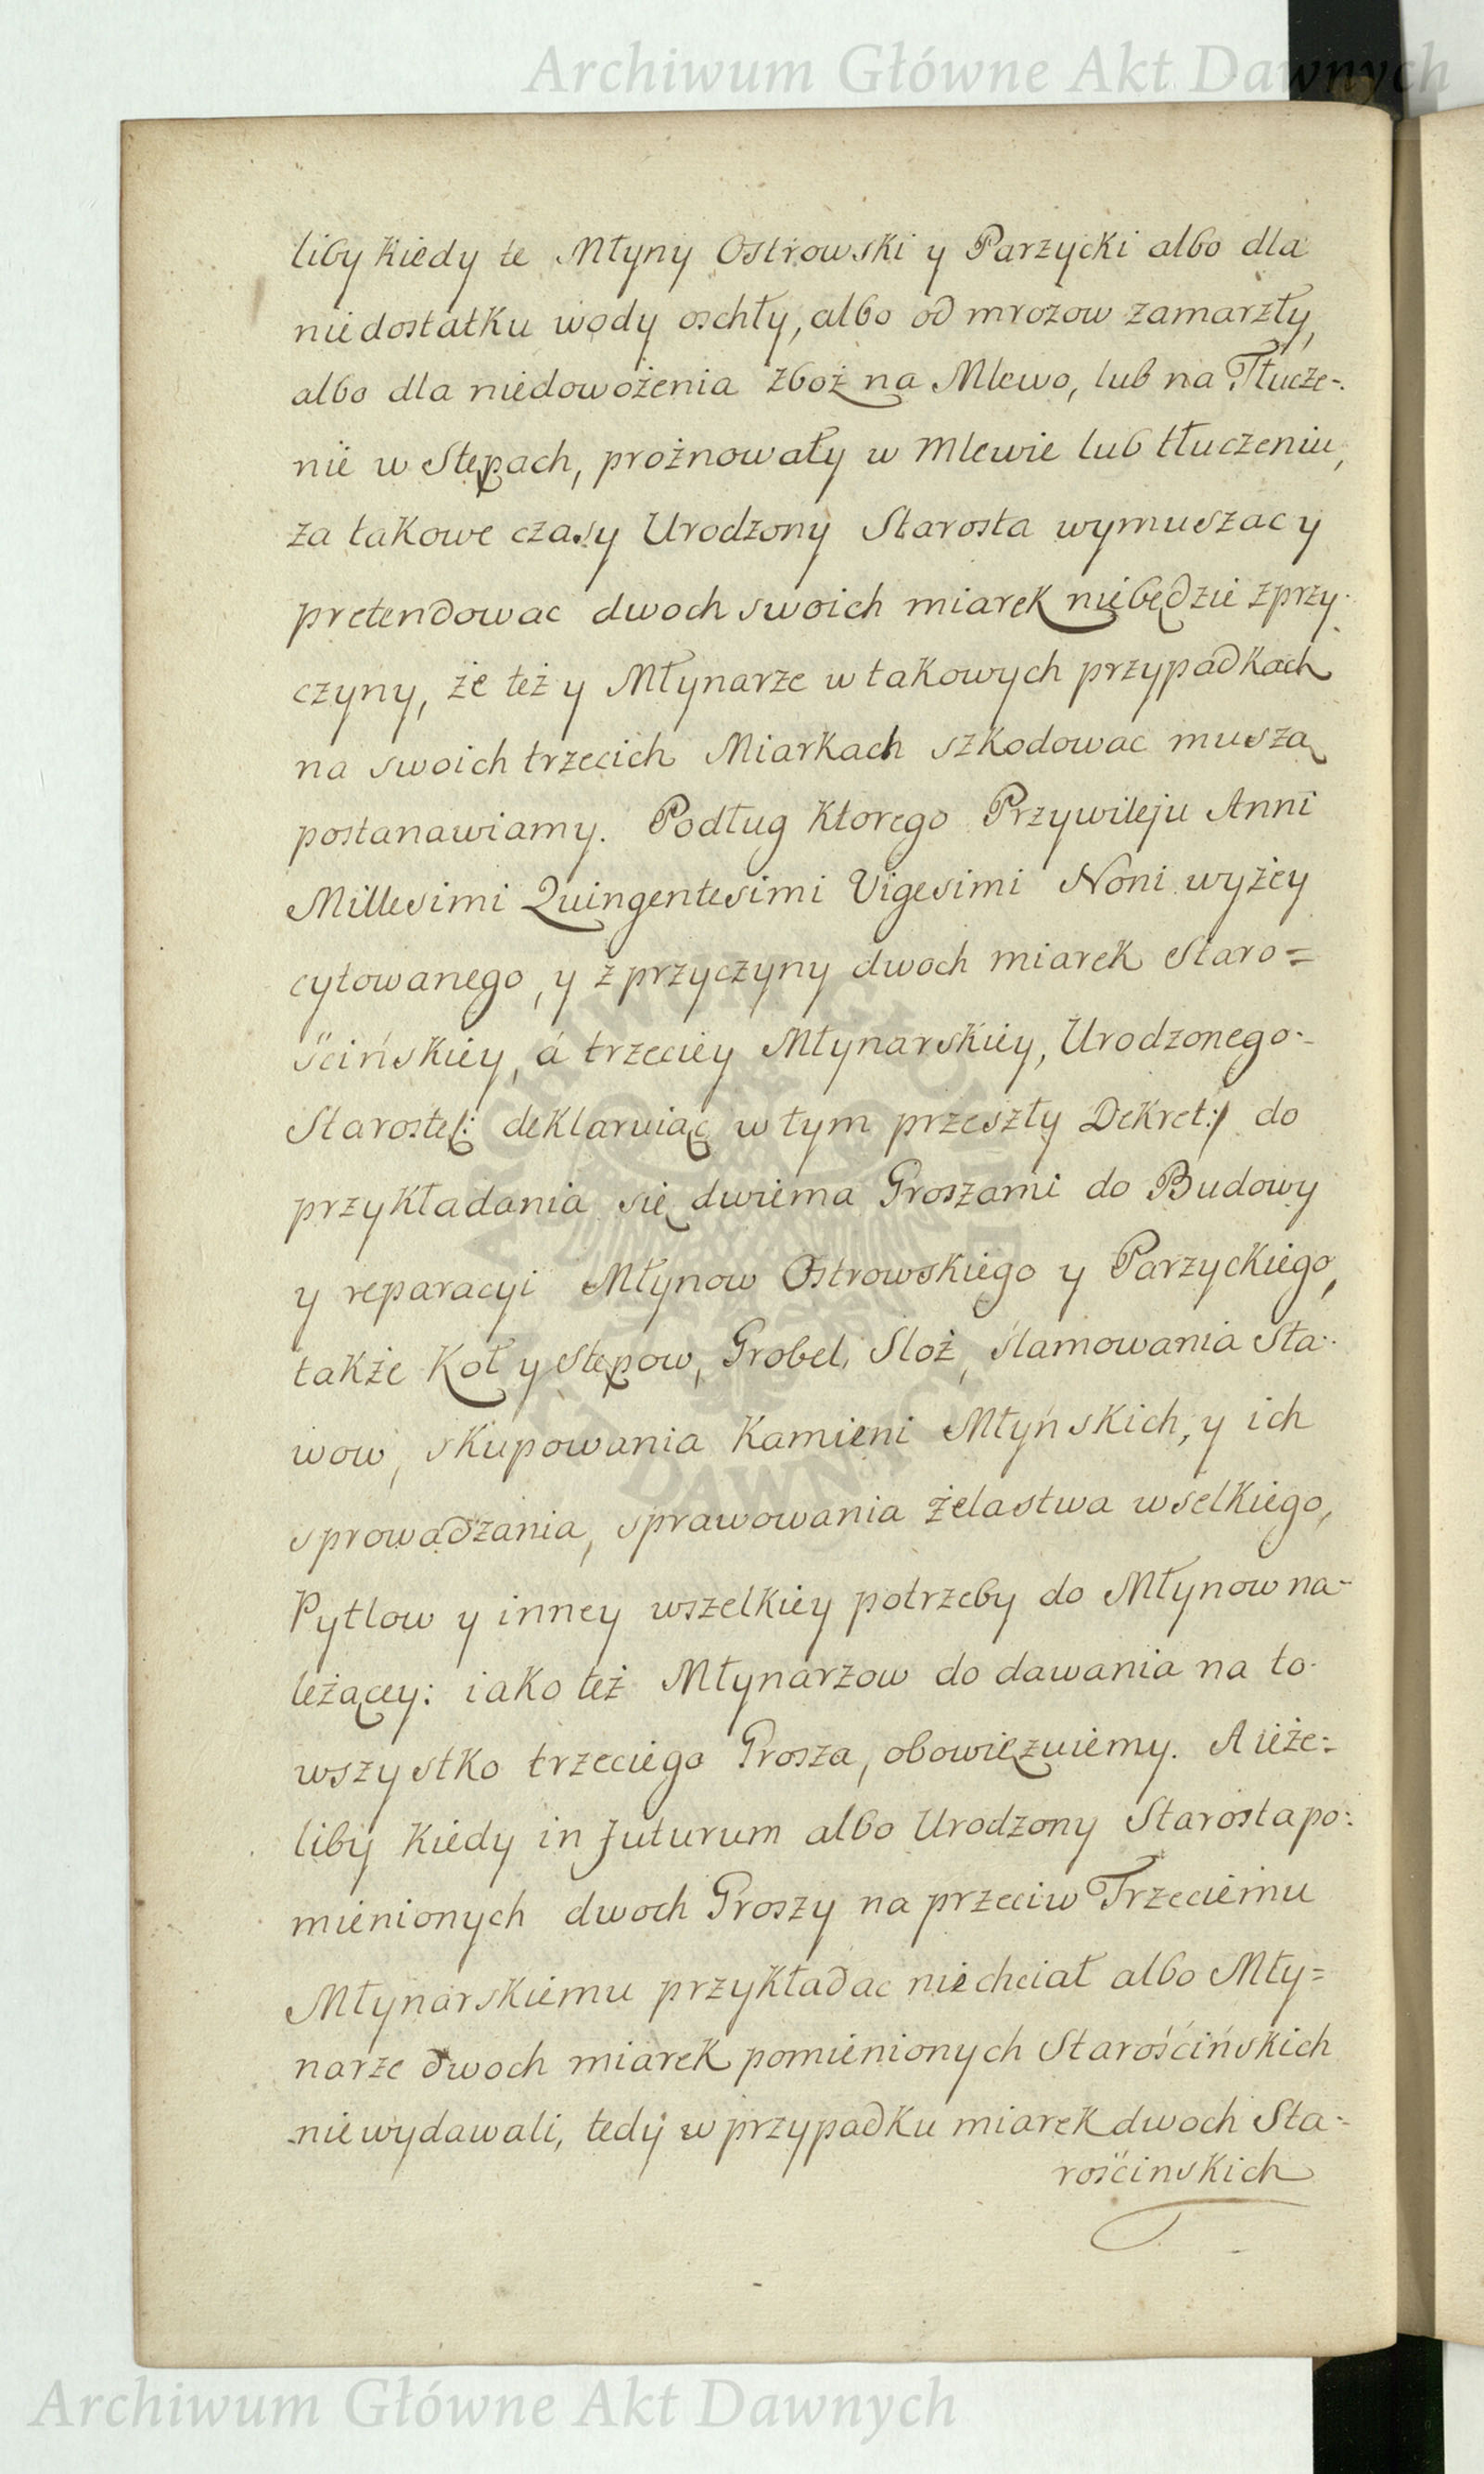 Archiwum Główne Akt Dawnych
liby kiedy te Młyny Ostrowski y Parzycki albo dla
niedostatku wody oschły, albo od mrozow zamarzły,
albo dla niedowożenia zboż na Mlewo, lub na Tłucze-
nie w Stępach, prożnowały w Mlewie lub tłuczeniu,
za takowe czasy Urodzony Starosta wymuszac y
pretendowac dwoch swoich miarek niebędzie zprzy-
czyny, że też y Młynarze w takowych przypadkach
na swoich trzecich Miarkach szkodowac muszą
postanawiamy. Podług ktorego Przywileju Anni
Millesimi Quingentesimi Vigesimi Noni wyżey
cytowanego, y z przyczyny dwoch miarek Staro=
ścińskiey, á trzeciey Młynarskiey, Urodzonego
Starostę/: deklaruiąc w tym przeszły Dekret:/ do
przykładania się dwiema Groszami do Budowy
y reparacyi Młynow Ostrowskiego y Parzyckiego,
także Koł y Stępow, Grobel, Sloż, slamowania Sta-
wow, skupowania Kamieni Młyńskich, y ich
sprowadzania, sprawowania żelastwa wselkiego,
Pytlow y inney wszelkiey potrzeby do Młynow na-
leżącey: iako też Młynarzow do dawania na to
wszystko trzeciego Grosza, obowięzuiemy. A ieże=
liby kiedy in futurum albo Urodzony Starosta po-
mienionych dwoch Groszy na przeciw Trzeciemu
Młynarskiemu przykładac niechciał albo Mły=
narze dwoch miarek pomienionych Starościńskich
niewydawali, tedy w przypadku miarek dwoch Sta-
rościnskich
ARCHIWUM GŁÓWNE AKT DAWNYCH
Archiwum Główne Akt Dawnych